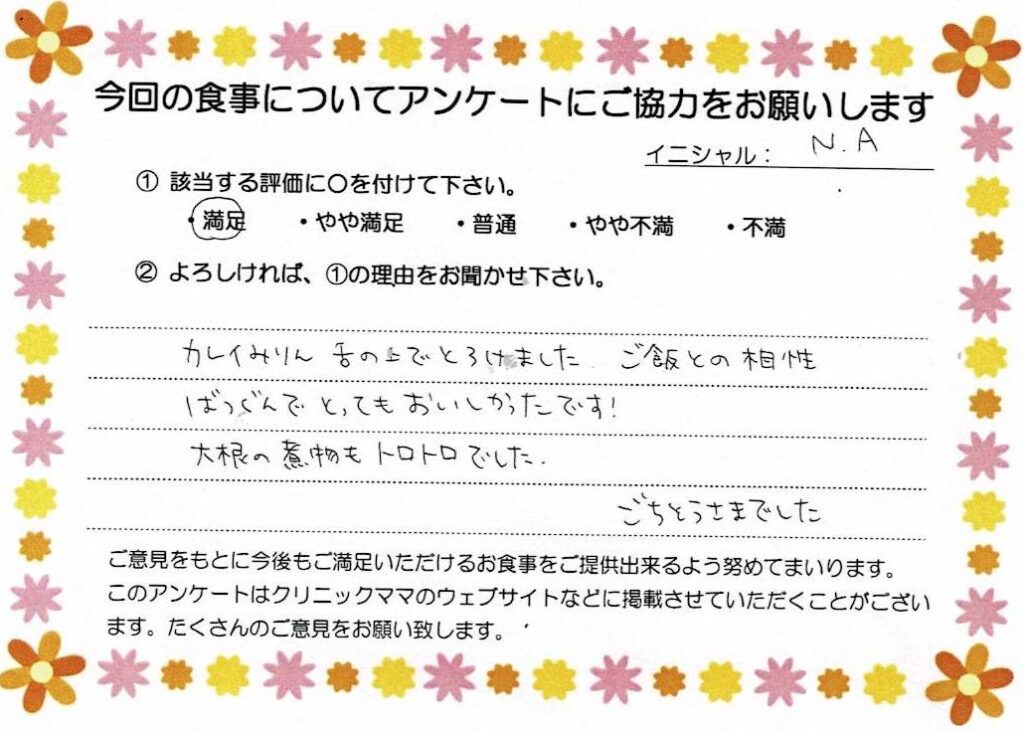 今回の食事についてアンケートにご協力をお願いします
イニシャル: N.A
① 該当する評価に〇を付けて下さい。
・満足 ・やや満足 ・普通 ・やや不満 ・不満
② よろしければ、①の理由をお聞かせ下さい。
カレイみりん 舌の上でとろけました. ご飯との相性
ばつぐんで とってもおいしかったです!
大根の煮物もトロトロでした.
ごちとうさまでした
ご意見をもとに今後もご満足いただけるお食事をご提供出来るよう努めてまいります。
このアンケートはクリニックママのウェブサイトなどに掲載させていただくことがござい
ます。たくさんのご意見をお願い致します。